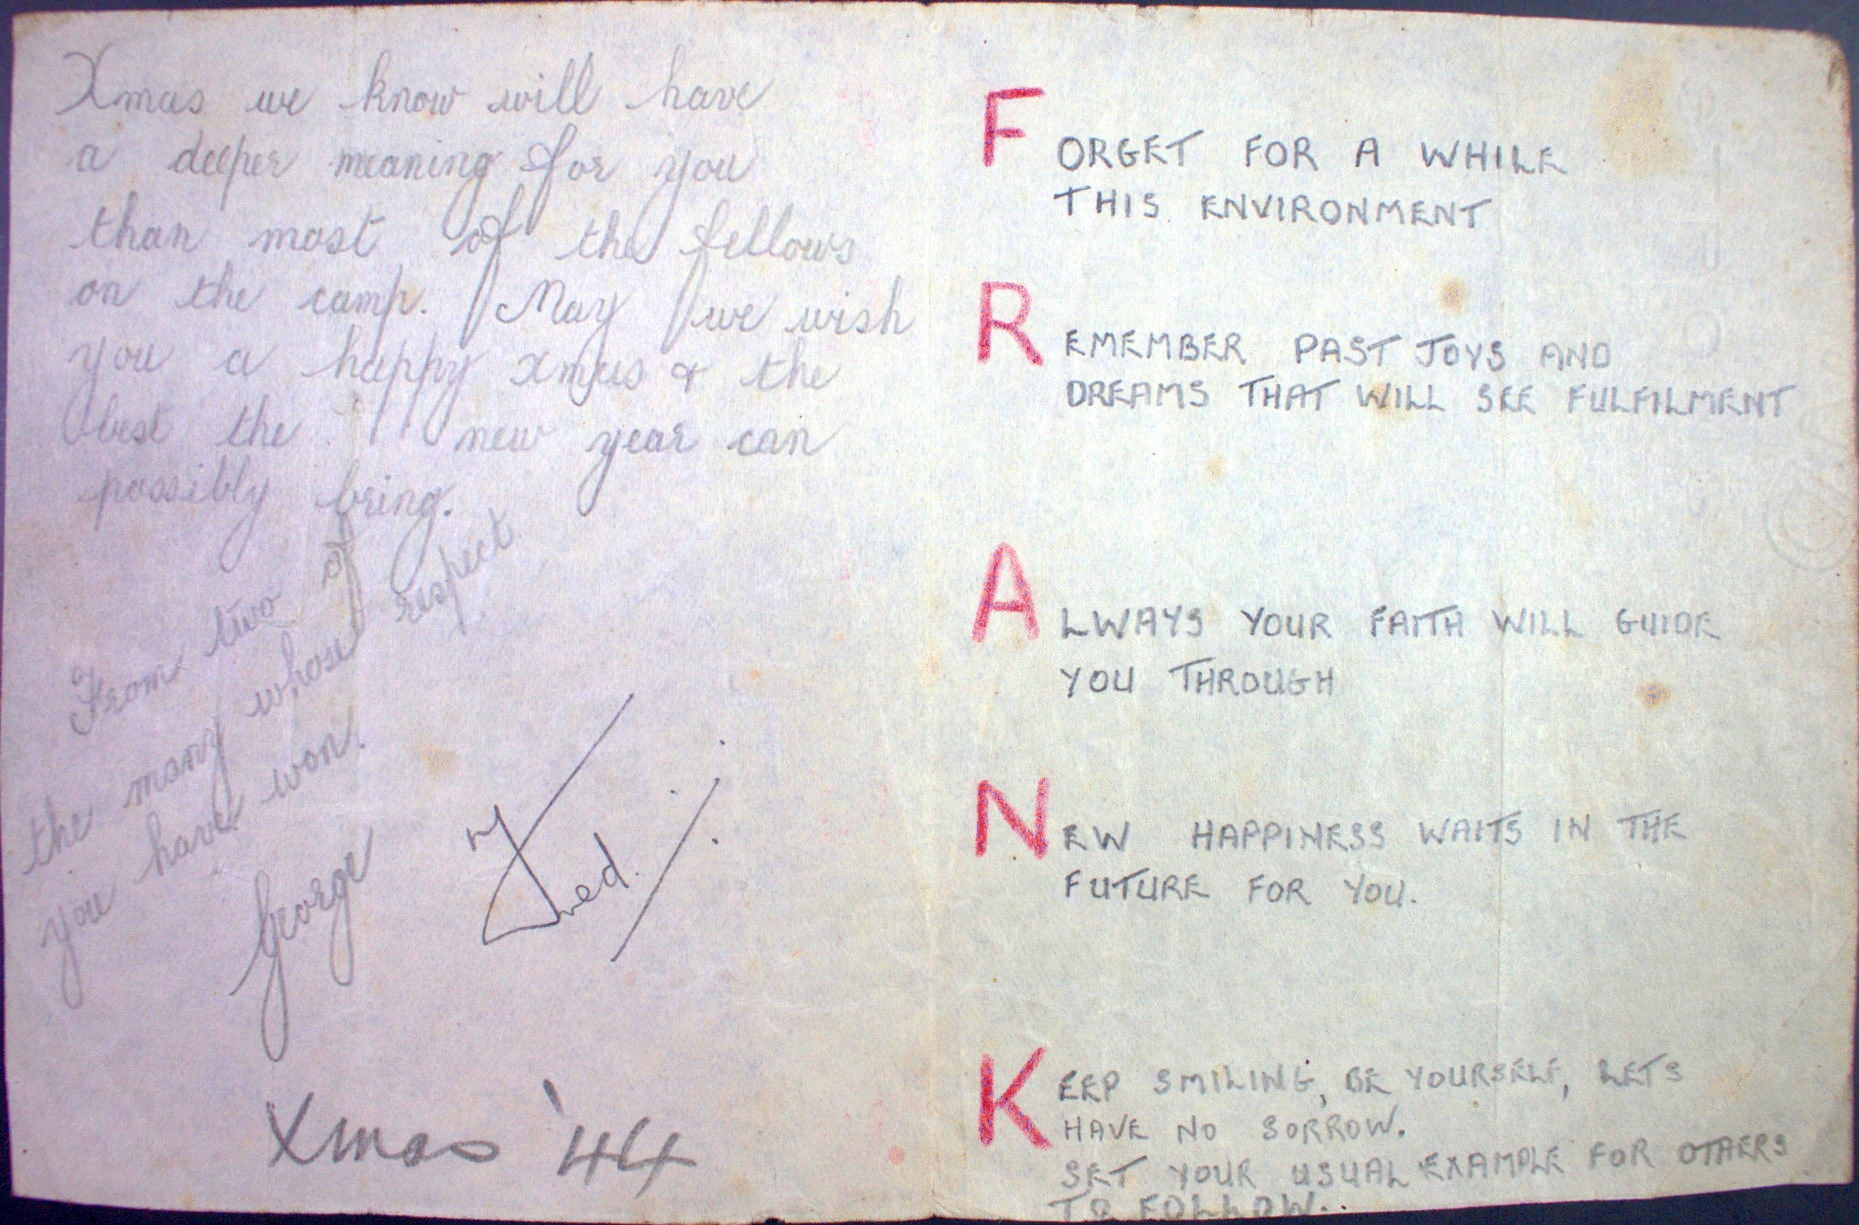 Xmas we know will have
a deeper meaning for you
than most of the fellows
on the camp. May we wish
you a happy xmas & the
best the new year can
possibly bring.
From two of
the many whose respect
you have won.
George
Ted.
Xmas '44
FORGET FOR A WHILE
THIS ENVIRONMENT
REMEMBER PAST JOYS AND
DREAMS THAT WILL SEE FULFILMENT
ALWAYS YOUR FAITH WILL GUIDE
YOU THROUGH
NEW HAPPINESS WAITS IN THE
FUTURE FOR YOU.
KEEP SMILING, BE YOURSELF, LETS
HAVE NO SORROW.
SET YOUR USUAL EXAMPLE FOR OTHERS
TO FOLLOW.